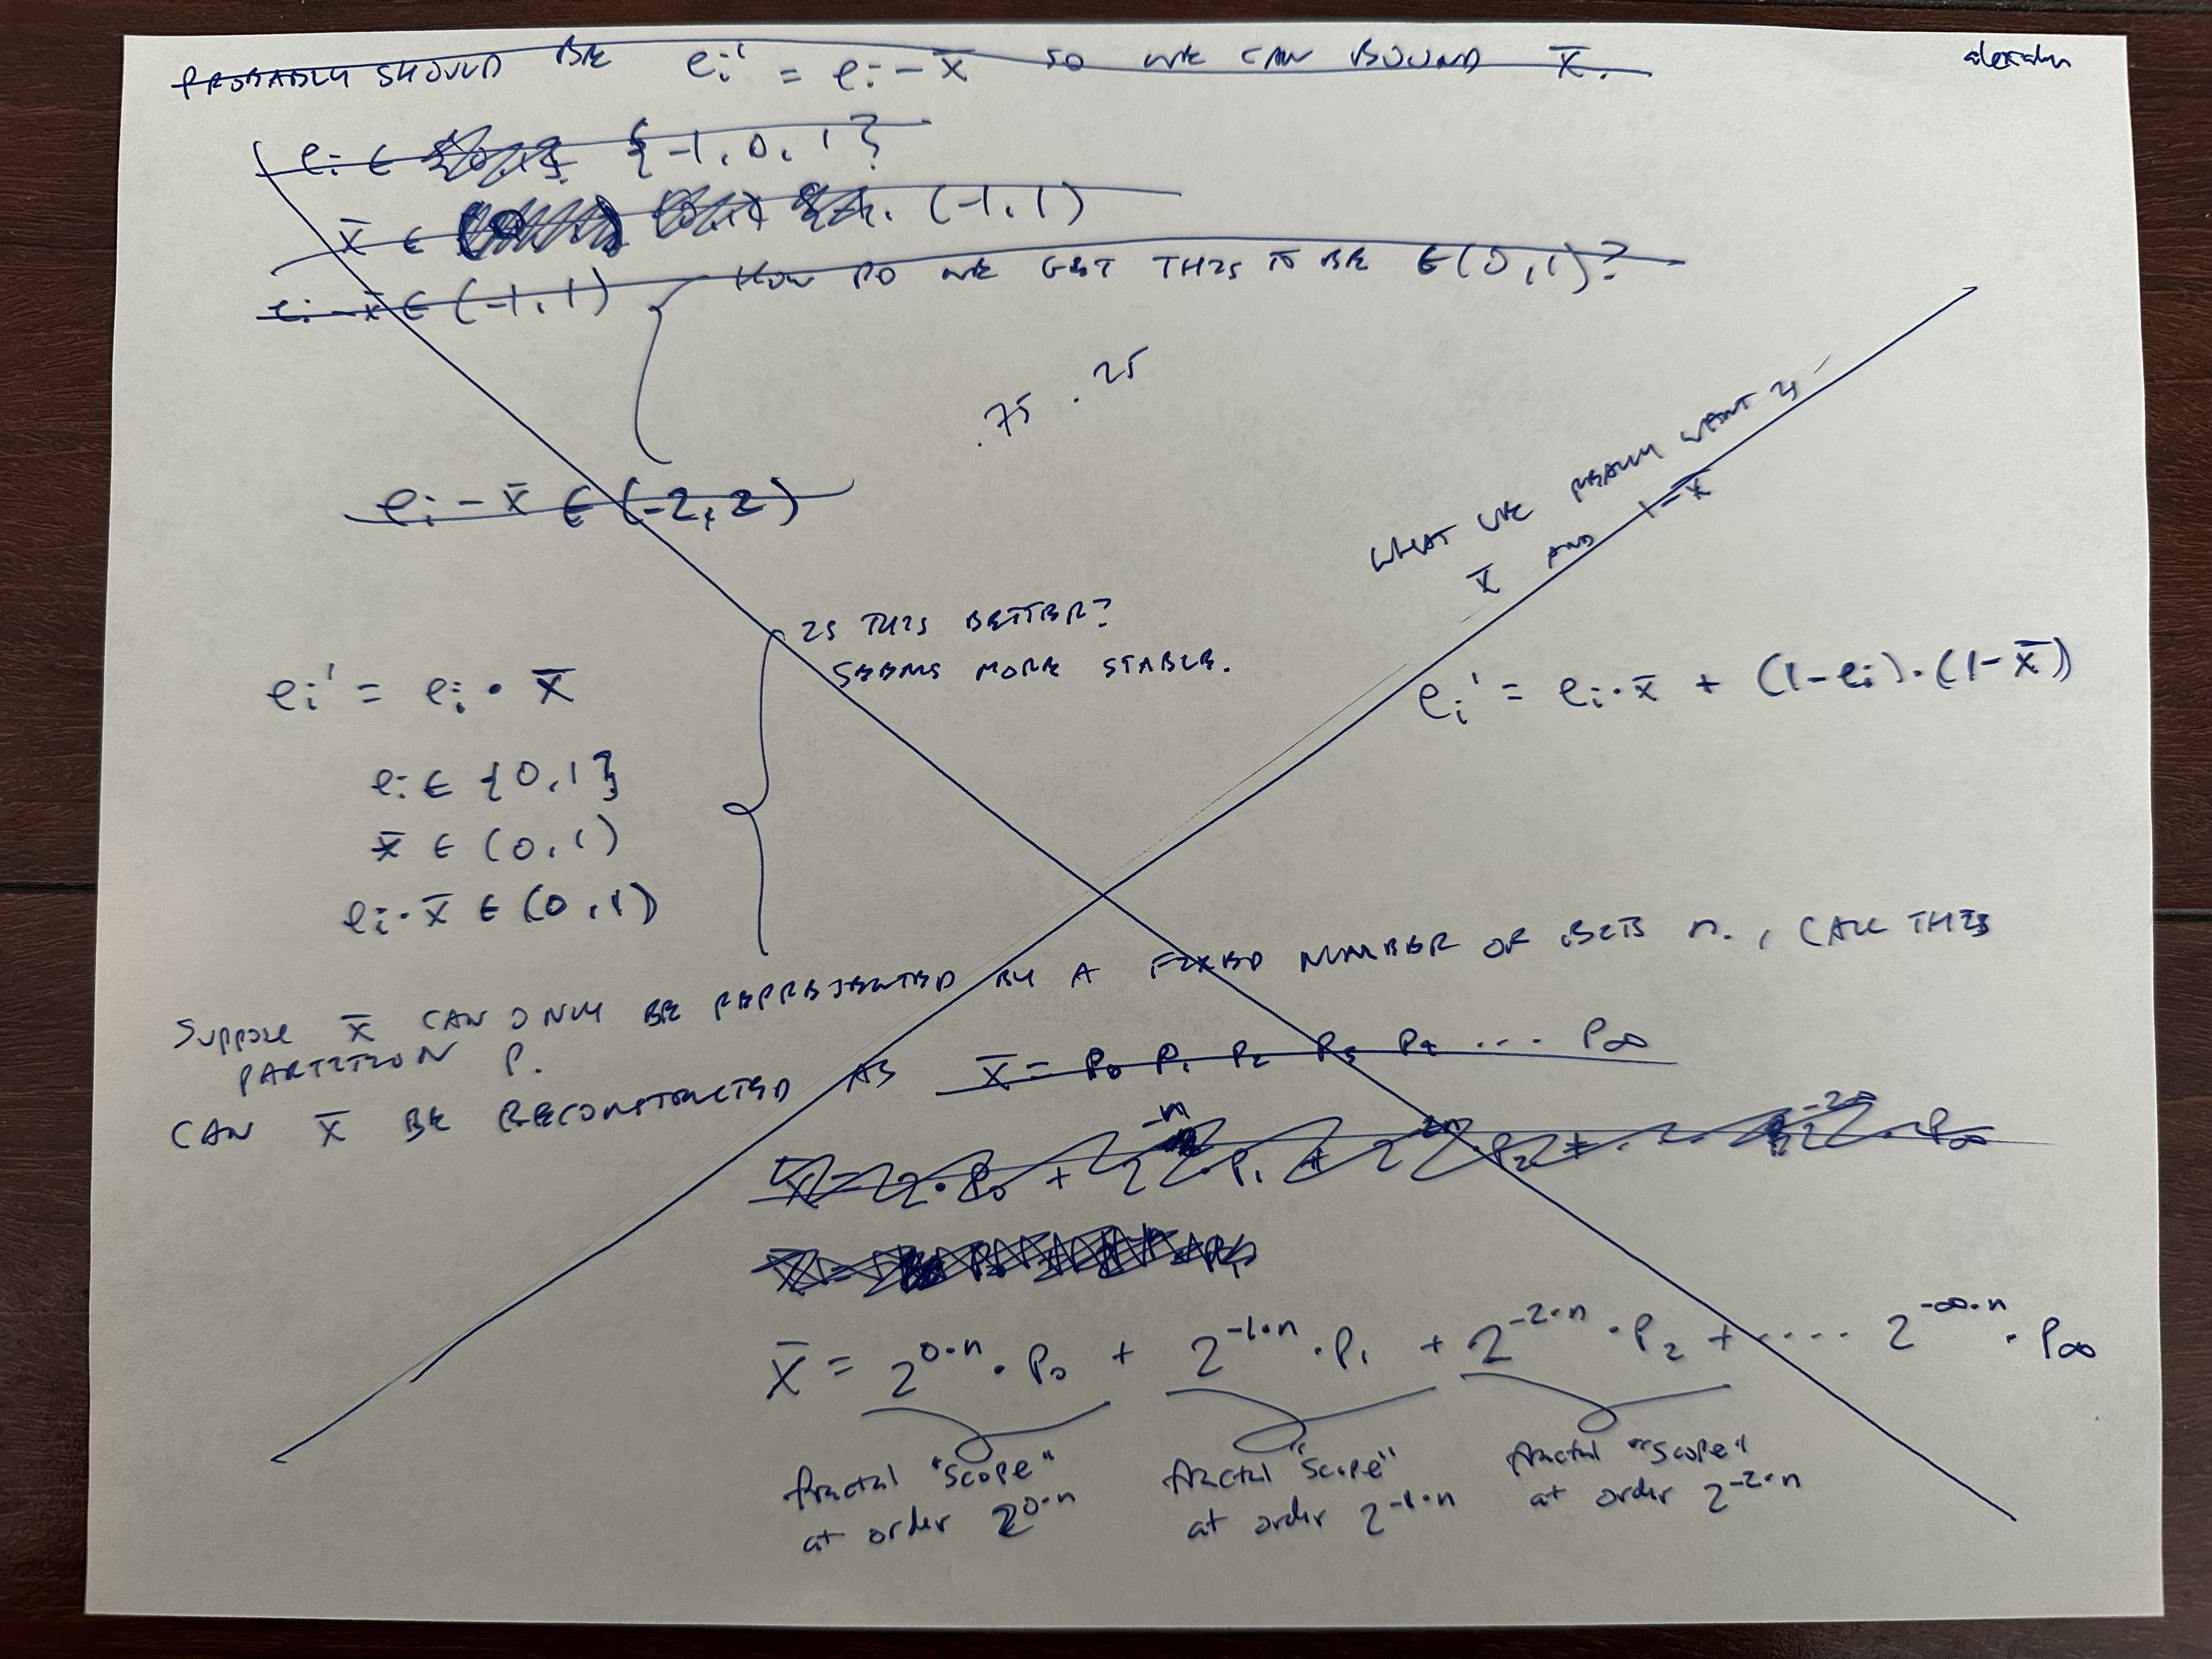 PROBABLY SHOULD BE eᵢ' = eᵢ - x̄ SO WE CAN BOUND x̄.
eᵢ ∈ {-1, 0, 1}
x̄ ∈ (-1, 1)
eᵢ - x̄ ∈ (-1, 1) HOW DO WE GET THIS TO BE ∈ (0, 1)?
.75 .25
eᵢ - x̄ ∈ (-2, 2)
WHAT WE REALLY WANT IS
x̄ AND 1-x̄
IS THIS BETTER?
SEEMS MORE STABLE.
eᵢ' = eᵢ · x̄
eᵢ' = eᵢ·x̄ + (1-eᵢ)·(1-x̄)
eᵢ ∈ {0, 1}
x̄ ∈ (0, 1)
eᵢ·x̄ ∈ (0, 1)
SUPPOSE x̄ CAN ONLY BE REPRESENTED BY A FIXED NUMBER OF BITS n., CALL THIS
PARTITION P.
CAN x̄ BE RECONSTRUCTED AS x̄ = P₀ P₁ P₂ P₃ P₄ ... P∞
x̄ = 2^0·n · P₀ + 2^-1·n · P₁ + 2^-2·n · P₂ + .... 2^-∞·n · P∞
fractal "scope" at order 2^0·n
fractal "scope" at order 2^-1·n
fractal "scope" at order 2^-2·n